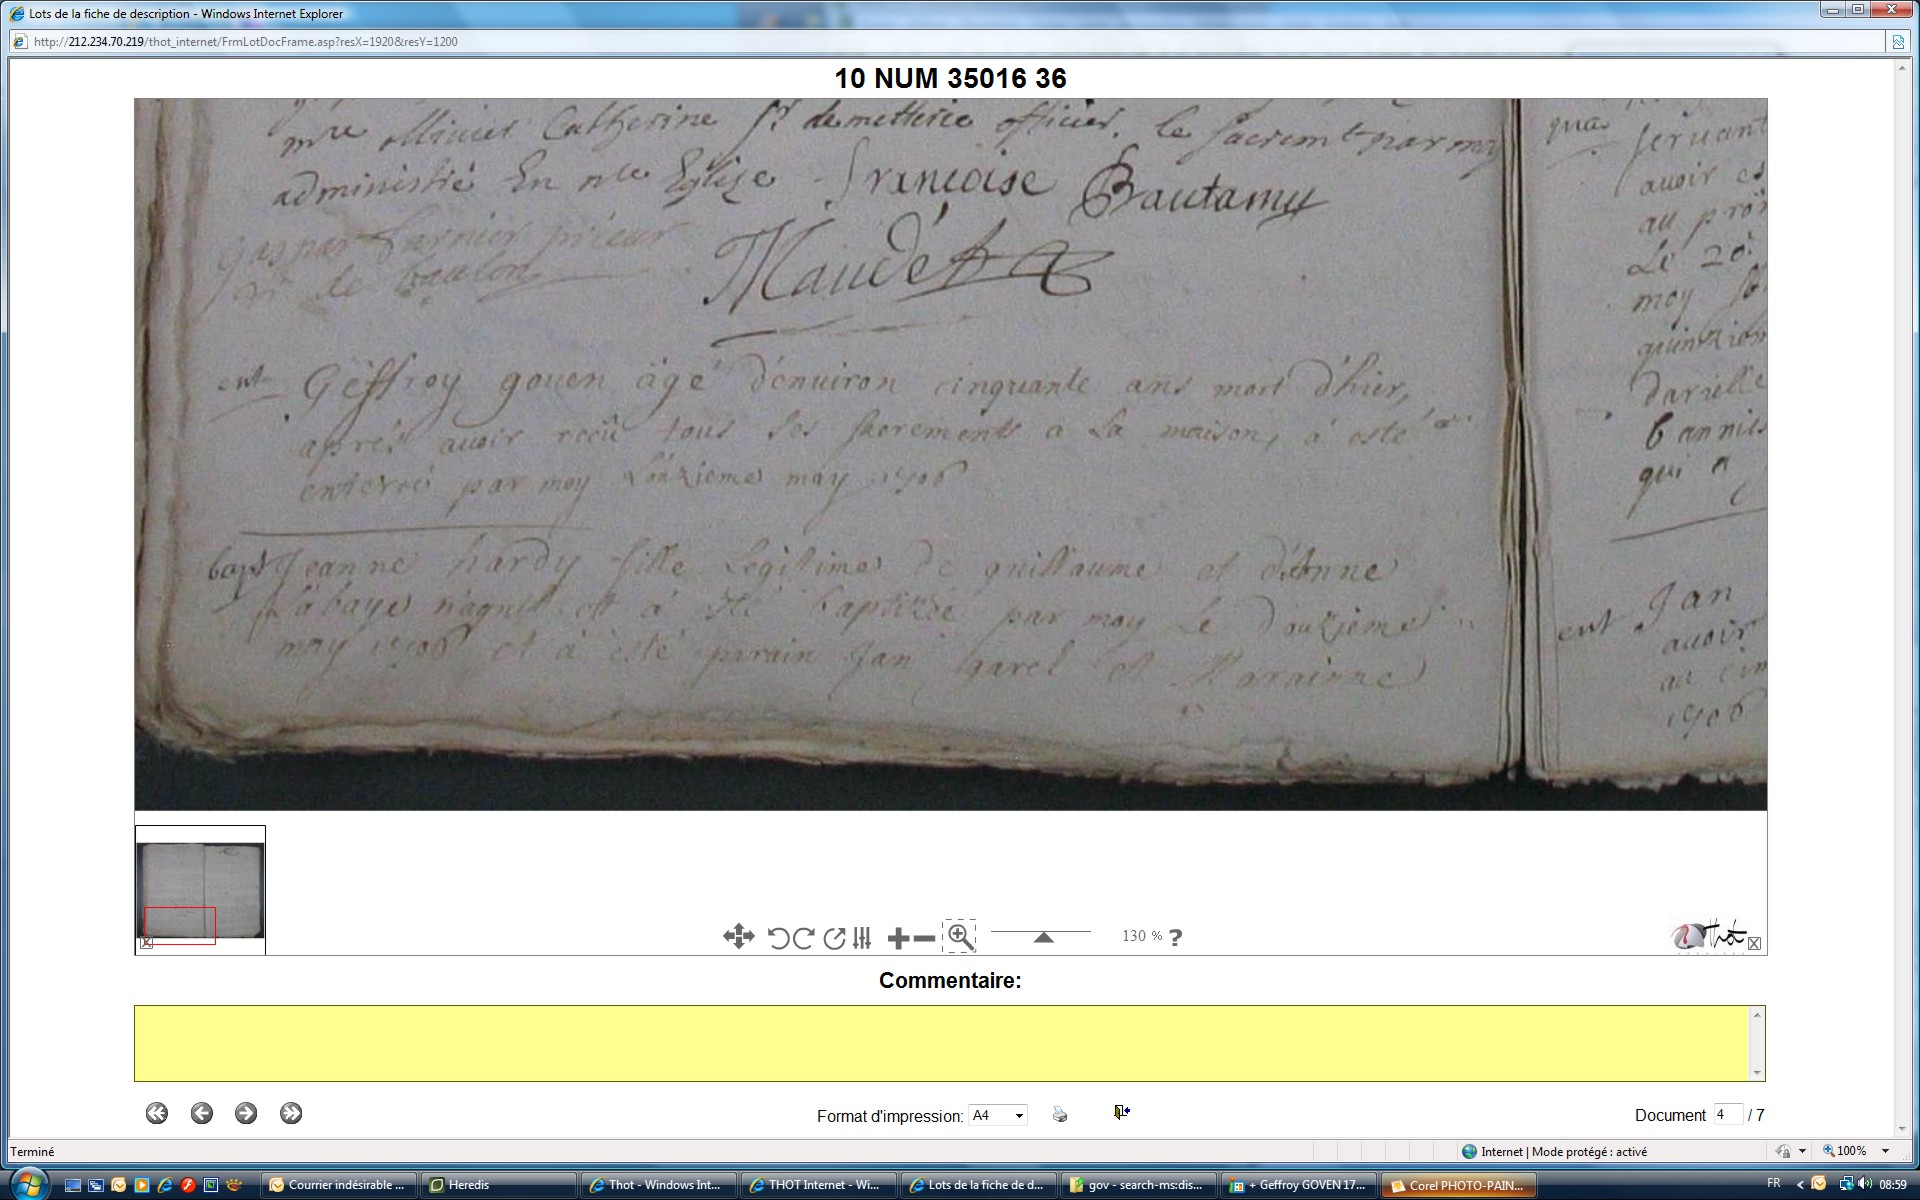 Lots de la fiche de description - Windows Internet Explorer
http://212.234.70.219/thot_internet/FrmLotDocFrame.asp?resX=1920&resY=1200
10 NUM 35016 36
mre ollivier Catherine Sr. demetterie officier. le sacremt par moy
administré En nre Eglise françoise Bautamy
gaspar garnier prieur
de baulon
Maudet
ent Geffroy gouen âgé d'enuiron cinquante ans mort d'hier,
aprés auoir recû tous ses sacrements a la maison, à esté
enterré par moy may 1706
bapt Jeanne hardy fille Legitime de guillaume et
L'abaye naquit et à esté baptizée par moy Le douzieme
may 1706 et à esté parain Jan harel et Marainne
qua seruant
auoir es
au prôn
Le 20e
moy
quinzien
darielle
bannies
qui a
ent Jan
auoir
au cin
1706
130 % ?
Thot
Commentaire:
Format d'impression: A4
Document 4 / 7
Terminé
Internet | Mode protégé : activé
100%
Courrier indésirable ...
Heredis
Thot - Windows Int...
THOT Internet - Wi...
Lots de la fiche de d...
gov - search-ms:dis...
+ Geffroy GOVEN 17...
Corel PHOTO-PAIN...
FR
08:59